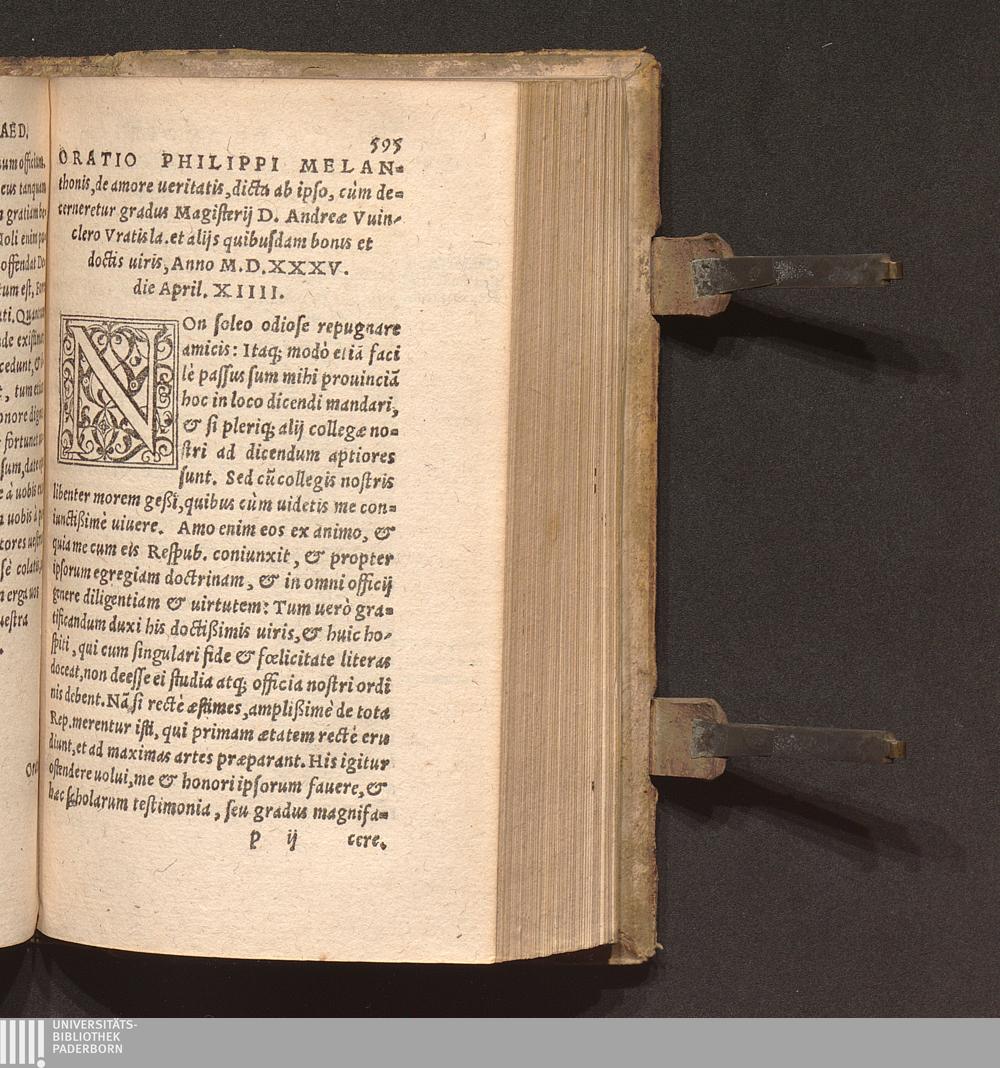 AED.
um officium.
eus tanquam
offendat
de
cedunt, &
, tum
fortune
sum, date
e à uobis
uobis
tores
sè
n erga uos
uestra
595
ORATIO PHILIPPI MELAN=
thonis, de amore ueritatis, dicta ab ipso, cùm de=
cerneretur gradus Magisterij D. Andreæ Vuin=
clero Vratisla. et alijs quibusdam bonis et
doctis uiris, Anno M.D.XXXV.
die April. XIIII.
NOn soleo odiose repugnare
amicis: Itaq; modò etiã faci
lè passus sum mihi prouinciã
hoc in loco dicendi mandari,
& si pleriq; alij collegæ no=
stri ad dicendum aptiores
sunt. Sed cũ collegis nostris
libenter morem geßi, quibus cùm uidetis me con=
iunctißimè uiuere. Amo enim eos ex animo, &
quia me cum eis Respub. coniunxit, & propter
ipsorum egregiam doctrinam, & in omni officij
genere diligentiam & uirtutem: Tum uerò gra=
tificandum duxi his doctißimis uiris, & huic ho=
spiti, qui cum singulari fide & fœlicitate literas
doceat, non deesse ei studia atq; officia nostri ordi
nis debent. Nã si rectè æstimes, amplißimè de tota
Rep. merentur isti, qui primam ætatem rectè eru
diunt, et ad maximas artes præparant. His igitur
ostendere uolui, me & honori ipsorum fauere, &
hæc scholarum testimonia, seu gradus magnifa=
p ij cere.
UNIVERSITÄTS-
BIBLIOTHEK
PADERBORN